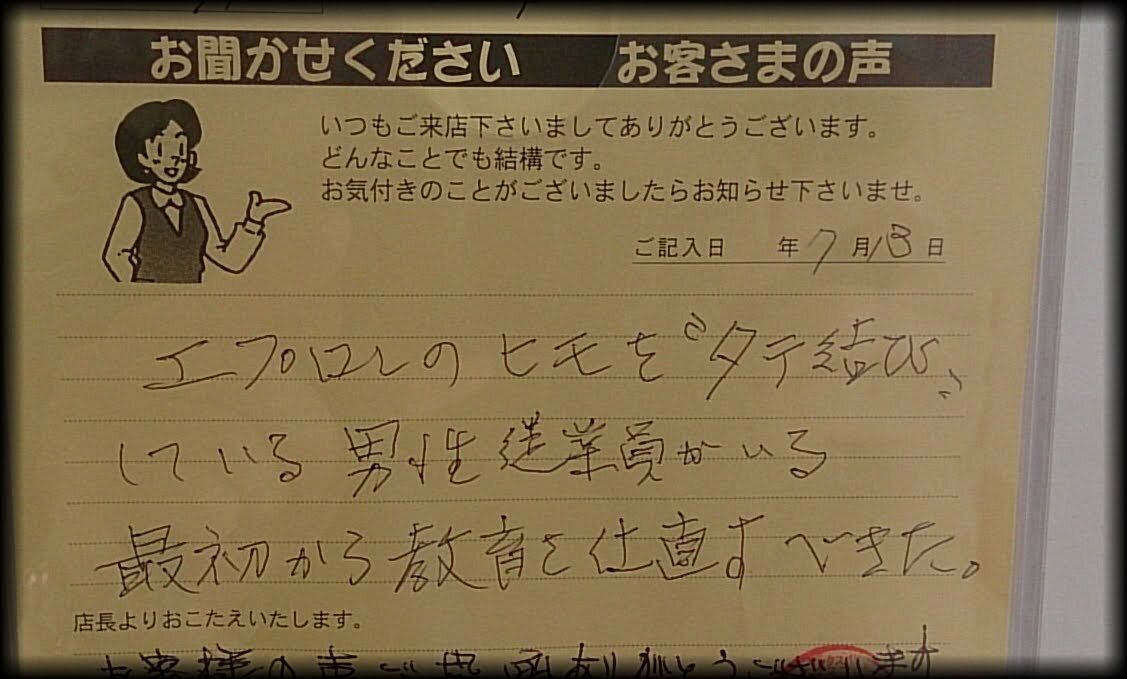 お聞かせください　お客さまの声
いつもご来店下さいましてありがとうございます。
どんなことでも結構です。
お気付きのことがございましたらお知らせ下さいませ。
ご記入日　年7月13日
エプロンのヒモを〝タテ結び〟
している男性従業員がいる
最初から教育を仕直すべきだ。
店長よりおこたえいたします。
お客様の声ご投函ありがとうございます